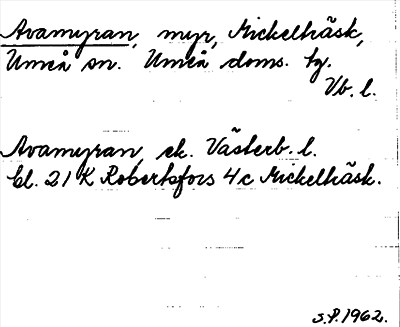 Avamyran, myr, Mickelträsk,
Umeå sn. Umeå doms. tg.
Vb. l.
Avamyran, ek. Västerb. l.
bl. 21 K Robertsfors 4c Mickelträsk.
S.P. 1962.